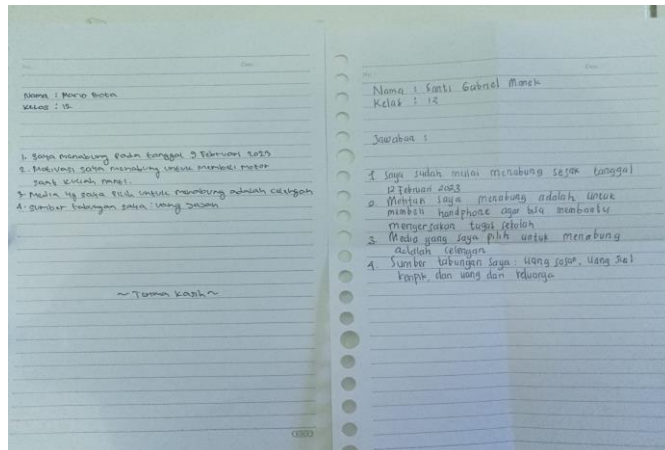 Nama : Mario Bota
Kelas : 12
1. Saya menabung pada tanggal 9 Februari 2023
2. Motivasi saya menabung untuk membeli motor
saat kuliah nanti.
3. Media yg saya pilih untuk menabung adalah celengan
4. Sumber tabungan saya : uang jajan
~ Terima Kasih ~
Nama : Santi Gabriel Manek
Kelas : 12
Jawaban :
1 Saya sudah mulai menabung sejak tanggal
12 Februari 2023
2. saya menabung adalah untuk
membeli handphone agar bisa membantu
mengerjakan tugas sekolah
3. Media yang saya pilih untuk menabung
adalah celengan
4. Sumber tabungan saya : uang jajan, uang jual
keripik, dan uang dari keluarga